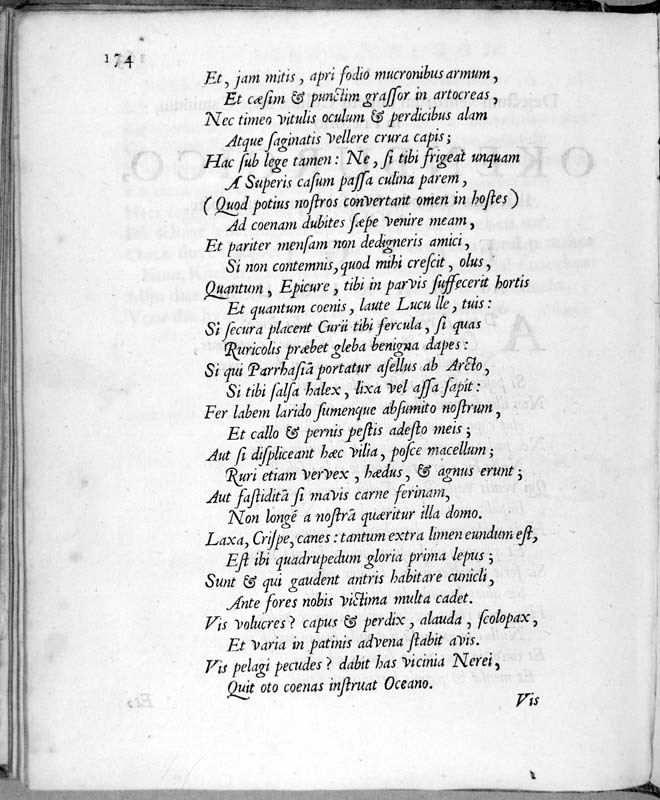 174
Et, jam mitis, apri fodio mucronibus armum,
Et cæsim & punctim graſſor in artocreas,
Nec timeo vitulis oculum & perdicibus alam
Atque ſaginatis vellere crura capis;
Hac ſub lege tamen: Ne, ſi tibi frigeat unquam
A Superis caſum paſſa culina parem,
(Quod potius noſtros convertant omen in hoſtes)
Ad coenam dubites ſæpe venire meam,
Et pariter menſam non dedigneris amici,
Si non contemnis, quod mihi creſcit, olus,
Quantum, Epicure, tibi in parvis ſuffecerit hortis
Et quantum coenis, laute Lucu lle, tuis:
Si ſecura placent Curii tibi fercula, ſi quas
Ruricolis præbet gleba benigna dapes:
Si qui Parrhaſiâ portatur aſellus ab Arcto,
Si tibi ſalſa halex, lixa vel aſſa ſapit:
Fer labem larido ſumenque abſumito noſtrum,
Et callo & pernis peſtis adeſto meis;
Aut ſi diſpliceant hæc vilia, poſce macellum;
Ruri etiam vervex, hædus, & agnus erunt;
Aut faſtiditâ ſi mavis carne ferinam,
Non longé a noſtrâ quæritur illa domo.
Laxa, Criſpe, canes: tantum extra limen eundum eſt,
Eſt ibi quadrupedum gloria prima lepus;
Sunt & qui gaudent antris habitare cunicli,
Ante fores nobis victima multa cadet.
Vis volucres? capus & perdix, alauda, ſcolopax,
Et varia in patinis advena ſtabit avis.
Vis pelagi pecudes? dabit has vicinia Nerei,
Quit oto coenas inſtruat Oceano.
Vis